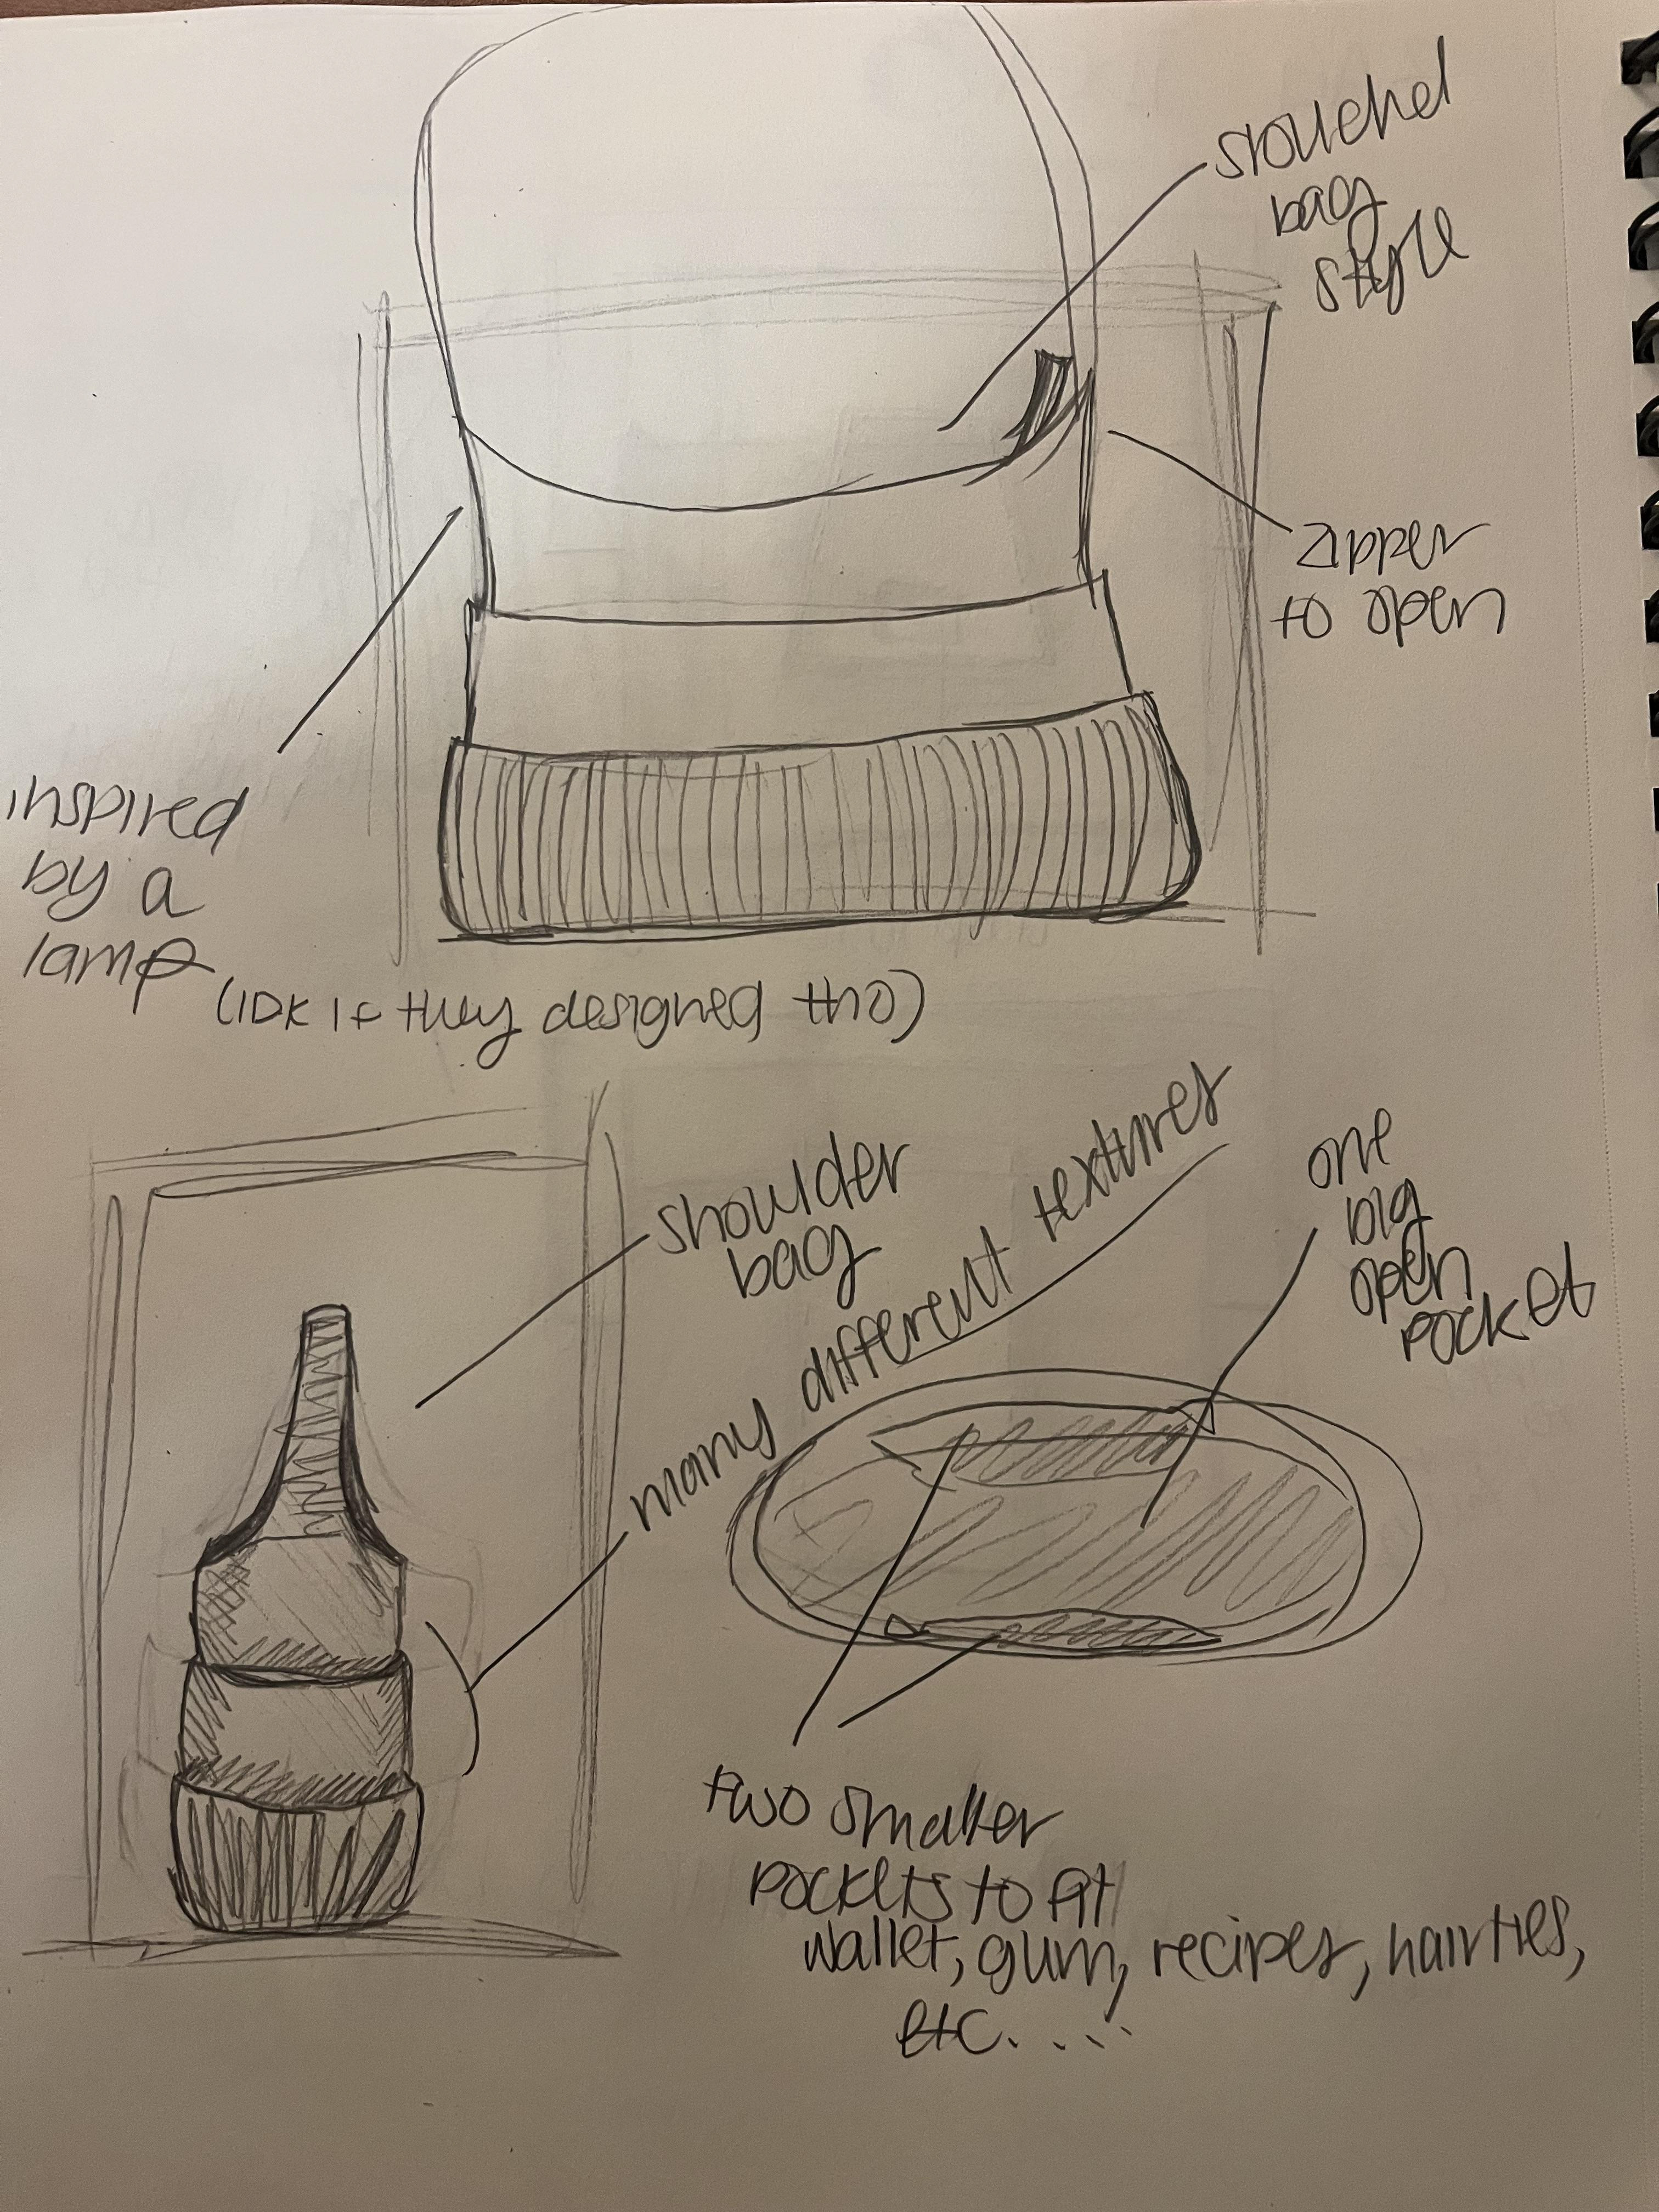 slouched
bag
style
zipper
to open
inspired
by a
lamp
(IDK if they designed tho)
shoulder
bag
many different textures
one
big
open
pocket
two smaller
pockets to fit
wallet, gum, recipes, hairties,
etc.....